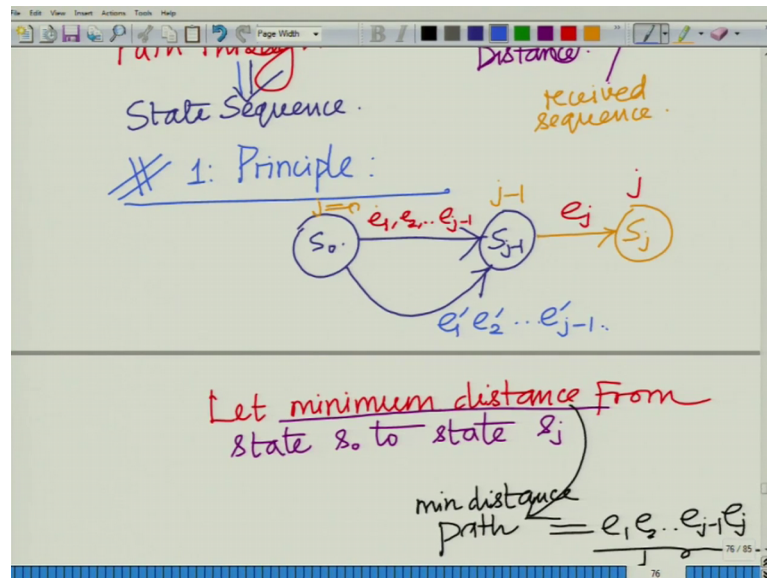 File Edit View Insert Actions Tools Help
Page Width
B I
Path Through
Distance.
State Sequence.
received
sequence.
# 1: Principle:
j-1
j
e₁, e₂, .. e_{j-1}
e_j
S₀.
S_{j-1}
S_j
e₁' e₂' .. e'_{j-1}.
Let minimum distance From
state s₀ to state s_j
min distance
path = e₁ e₂ .. e_{j-1} e_j
76 / 85
76